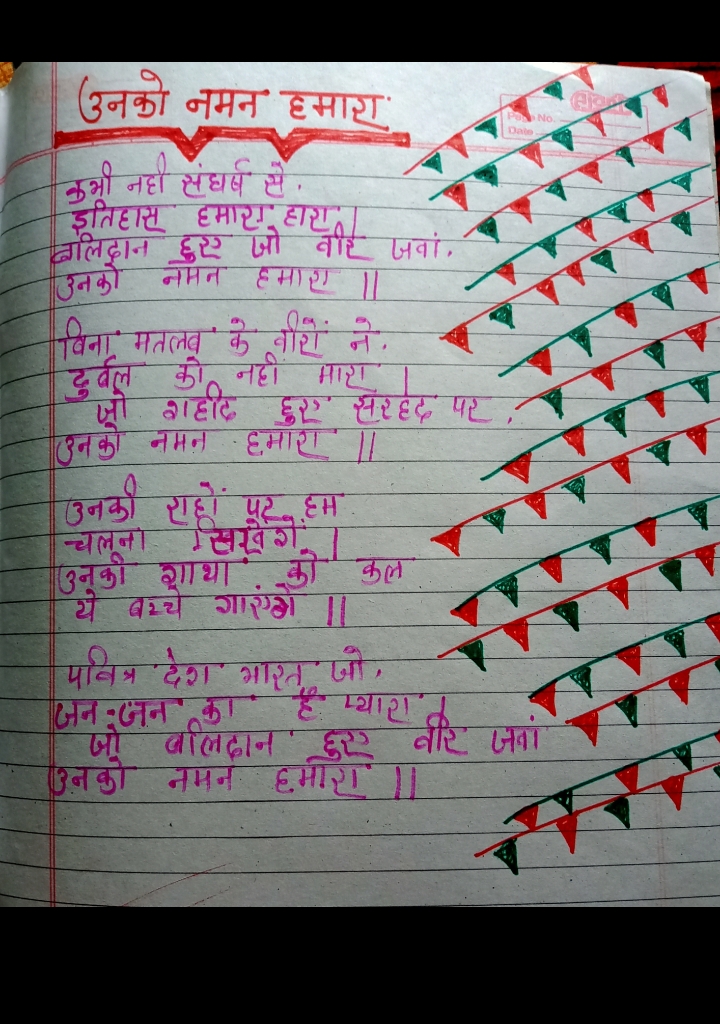 उनको नमन हमारा
Page No.
Date
कभी नही संघर्ष से.
इतिहास हमारा हारा |
बलिदान हुए जो वीर जवां.
उनको नमन हमारा ||
बिना मतलब के वीरों ने.
दुर्बल को नही मारा |
जो शहीद हुए सरहद पर .
उनको नमन हमारा ||
उनकी राहों पर हम
चलना सिखेगें |
उनकी गाथा को कल
ये बच्चे गाएंगे ||
पवित्र देश भारत जो.
जन-जन का है प्यारा |
जो बलिदान हुए वीर जवां
उनको नमन हमारा ||